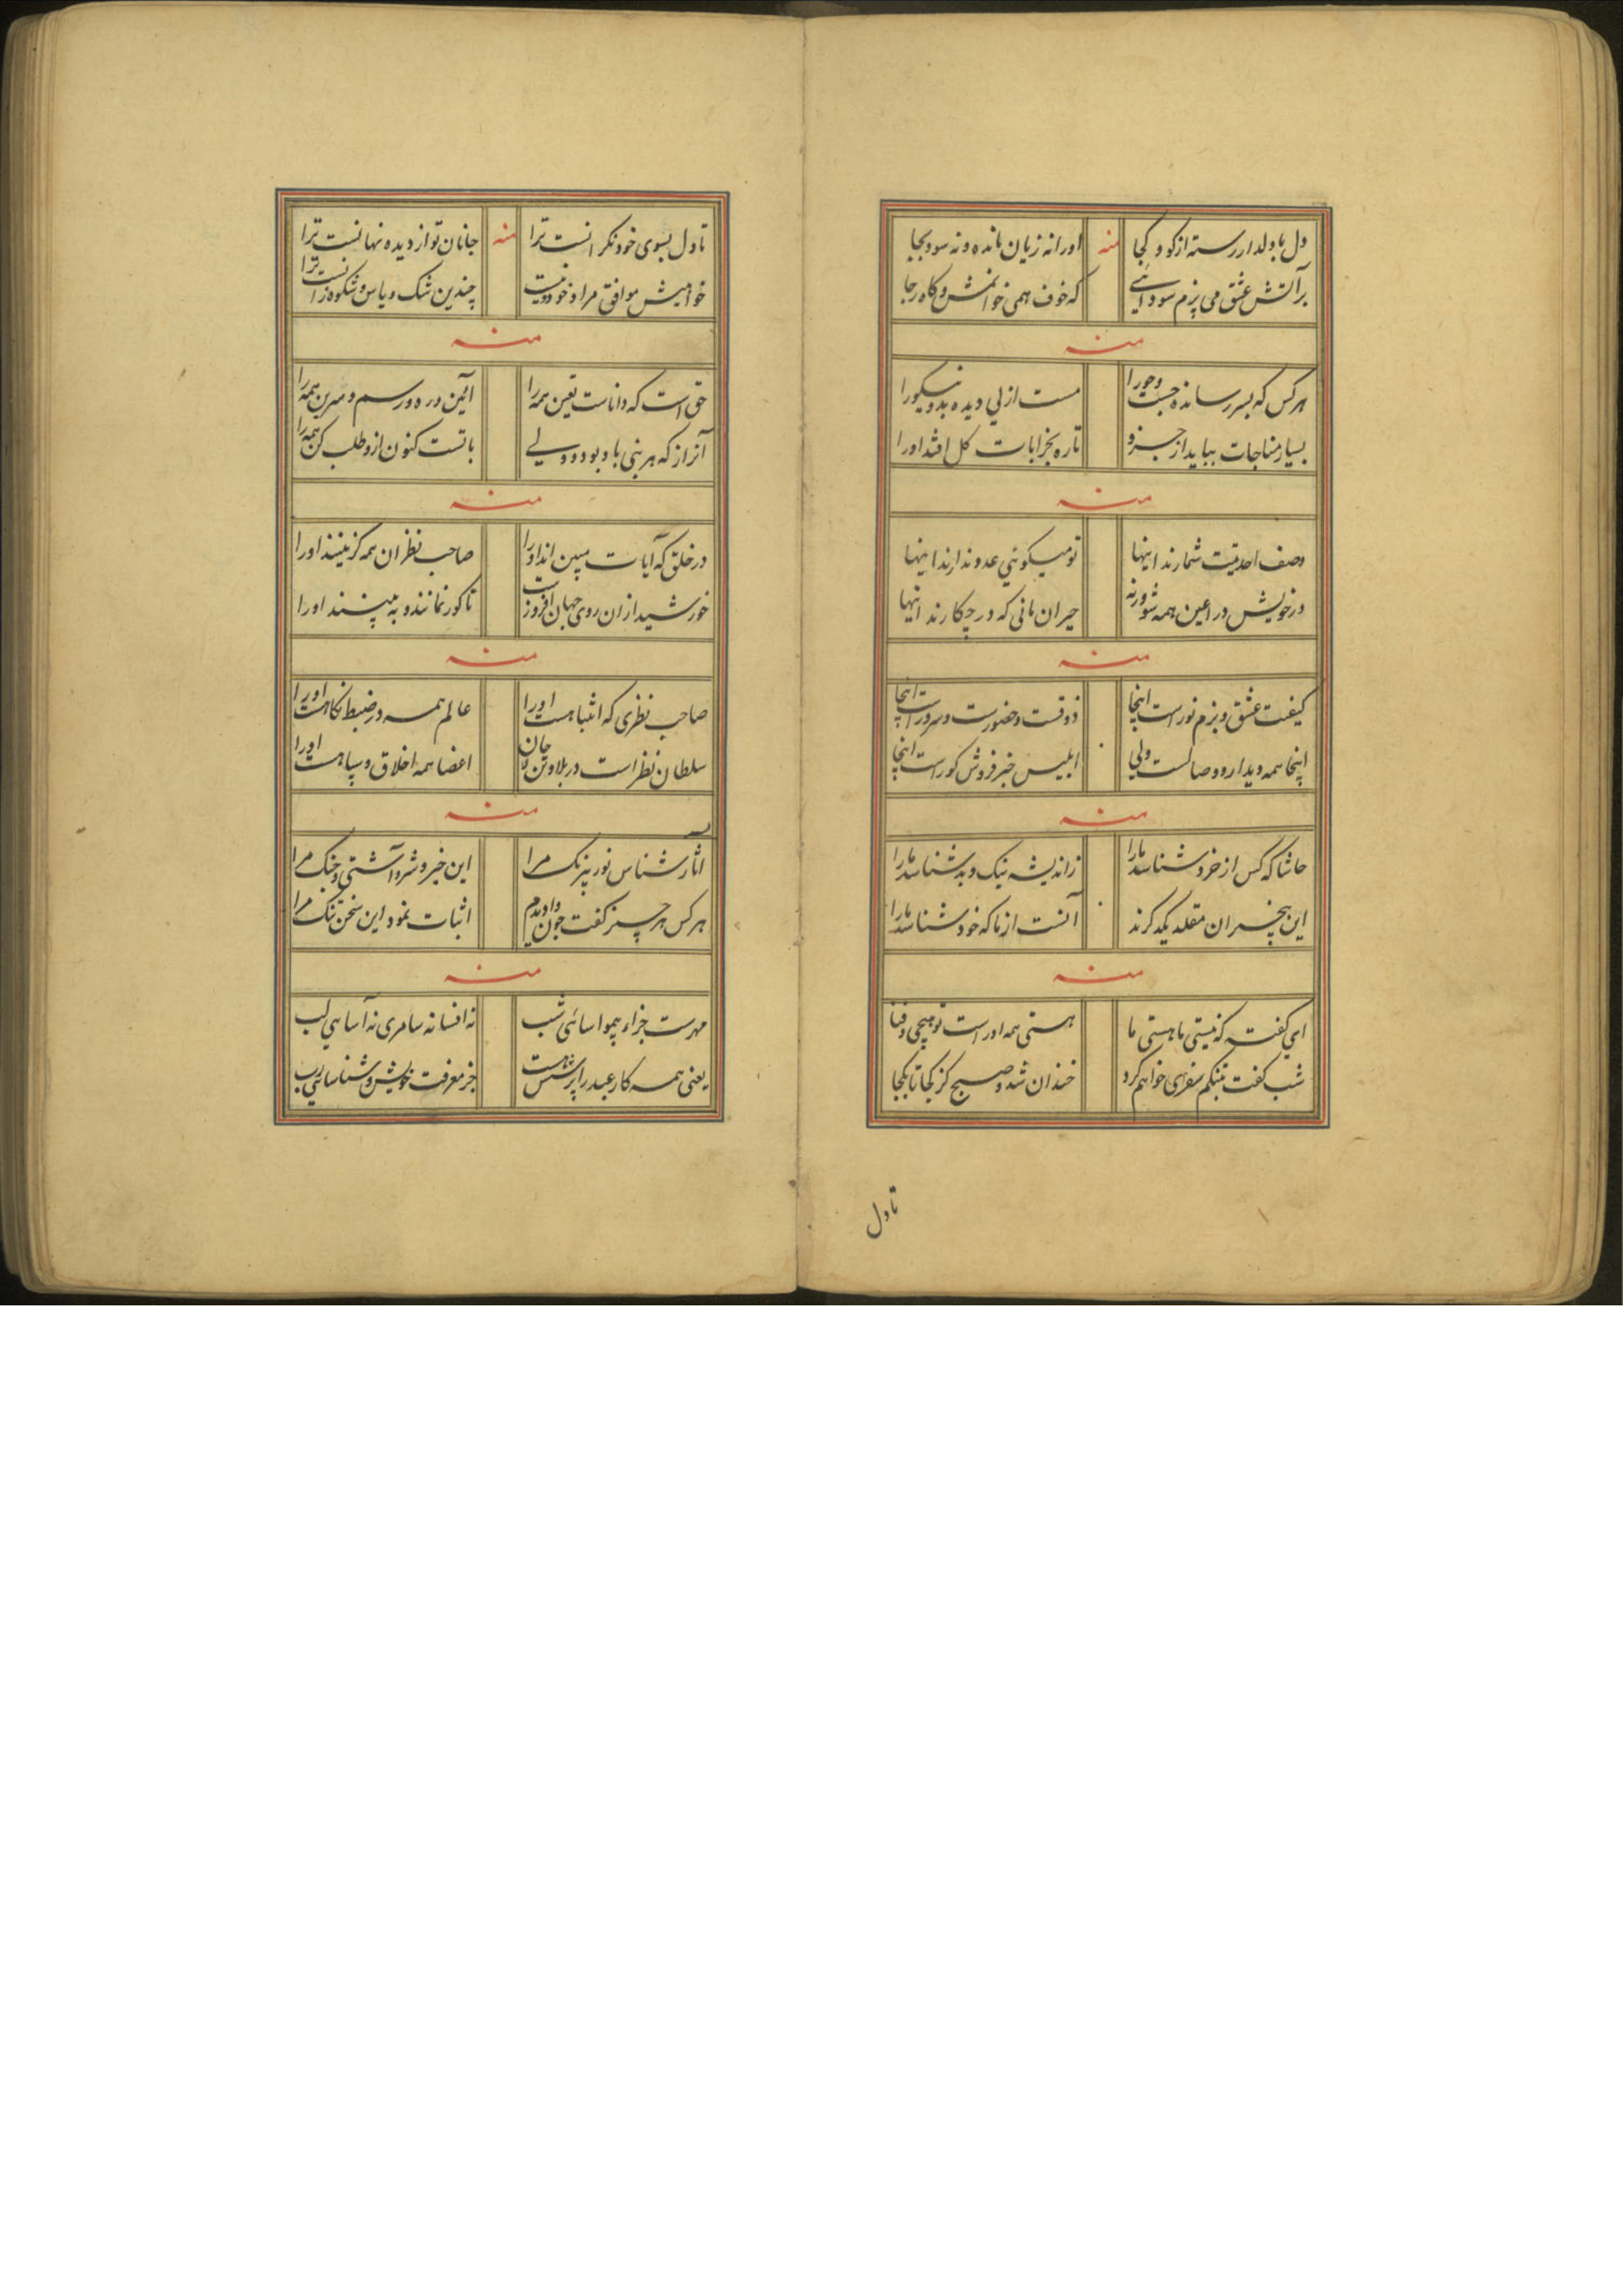 دل با دلدار رسته از کو و کجا منه او را نه زیان مانده و نه سود بجا
بر آتش عشق می پزم سودائی که خوف همی خوانمش و کاه رجا
منه
هر کس که بسر رسانده جست و جو را مست ازلی دیده بد و نیکو را
بسیار مناجات بباید از جزو تا ره بخرابات کل افتد او را
منه
وصف احدیت شمارند اینها تو میکوئی عدوند ارند اینها
در خویش درا عین همه شو ورنه حیران مانی که در چکارند اینها
منه
کیفیت عشق و بزم نور است اینجا ذوقست و حضورست و سرور است اینجا
اینجا همه دیدار و وصالست ولی ابلیس خبر فروش کور است اینجا
منه
حاشا که کس از خرد شناسد ما را ز اندیشه نیک و بد شناسد ما را
این بیخبران مقلد یکدکرند آنست از ما که خود شناسد ما را
منه
ای گفته که نیستی ما هستی ما هستی همه اوراست تو هیچی و فنا
شب کفت بتنکم سفری خواهم کرد خندان شد و صبح کز کجا تا بکجا
تا دل
تا دل بسوی خود نکرانست ترا منه جانان تو از دیده نهانست ترا
خواهیش موافق مراد خود نیست چندین شک و یاس و شکوه زانست ترا
منه
حق است که داناست تعین همه را آئین و ره و رسم و همه را
آنراز که هر بنی باو بود ولی باتست کنون ازو طلب کن همه را
منه
در خلق که آیات مبین اند او را صاحب نظران همه کزینند او را
خورشید از ان روی جهان افروز است تا کور نمانند و به بینند او را
منه
صاحب نظری که انتباهست او را عالم همه در ضبط نکاهست او را
سلطان نظر است در بلاد تن و جان اعضا همه اخلاق و سپاهست او را
منه
آثار شناس نور بیرنک مرا این خیر و شر و آشتی و جنک مرا
هر کس هر چیز کفت چون وادیدم اثبات نمود این سخن تنک مرا
منه
مهرست جزاء بهوا سائی شب نه افسانه سامری نه آساهی لب
یعنی همه کار عبد را پرسش هست جز معرفت خویش و شناسائی رب